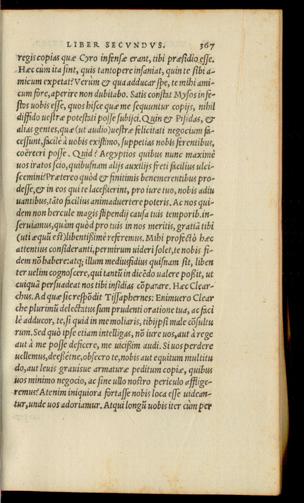 LIBER SECVNDVS. 367
regis copias quæ Cyro infensæ erant, tibi præsidio esse.
Hæc cùm ita sint, quis tantopere insaniat, quin te sibi a-
micum expetat? Verùm & qua adducar spe, te mihi ami-
cum fore, aperire non dubitabo. Satis constat Mysos infe-
stos uobis esse, quos hisce quæ me sequuntur copijs, nihil
diffido uestræ potestati posse subijci. Quin & Pisidas, &
alias gentes, quæ (ut audio) uestræ felicitati negocium fa-
cessunt, facilè à uobis existimo, suppetias nobis ferentibus,
coërceri posse. Quid? Aegyptios quibus nunc maximè
uos iratos scio, quibusnam alijs auxilijs freti facilius ulci-
scemini? Prætereo quòd & finitimis benemerentibus pro-
desse, & in eos qui te lacessierint, pro iure tuo, nobis adiu
uantibus, tãto facilius animaduertere poteris. Ac nos qui-
dem non hercule magis stipendij causa tuis temporib. in-
seruiamus, quàm quòd pro tuis in nos meritis, gratiã tibi
(uti æquũ est) libentißimè referemus. Mihi profectò hæc
attentius consideranti, permirum uideri solet, te nobis fi-
dem nõ habere: atq; illum mediusfidius quisnam sit, liben
ter uelim cognoscere, qui tantũ in dicẽdo ualere poßit, ut
cuiquã persuadeat nos tibi insidias cõparare. Hæc Clear-
chus. Ad quæ sic respõdit Tissaphernes: Enimuero Clear
che plurimũ delectatus sum prudenti oratione tua, ac faci
lè adducor, te, si quid in me moliaris, tibijpsi malè cõsultu
rum. Sed quò ipse etiam intelligas, nõ iure uos, aut à rege
aut à me posse deficere, me uicißim audi. Si uos perdere
uellemus, deeßétne, obsecro te, nobis aut equitum multitu
do, aut leuis grauisue armaturæ peditum copiæ, quibus
uos minimo negocio, ac sine ullo nostro periculo afflige-
remus? Atenim iniquiora fortasse nobis loca esse uidean-
tur, unde uos adoriamur. Atqui longũ uobis iter cùm per